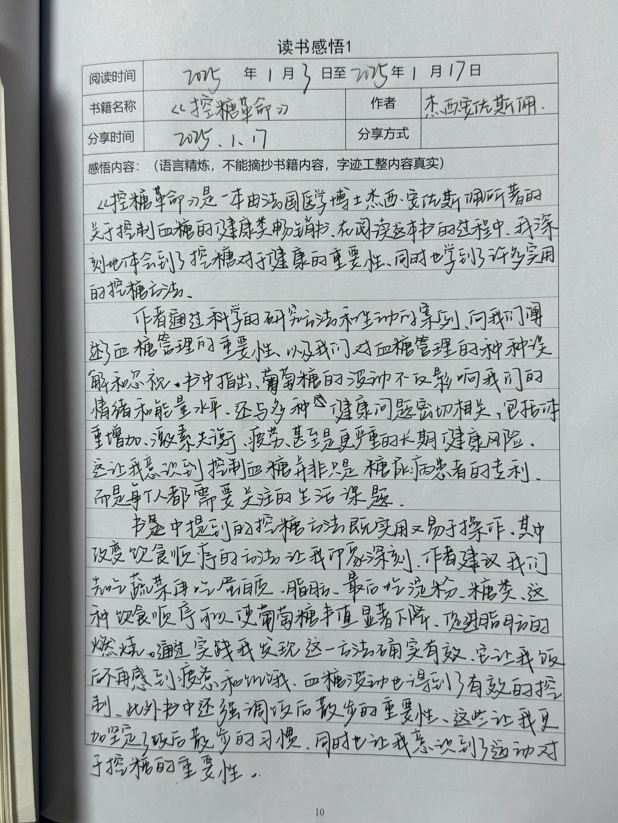 读书感悟1
阅读时间 2025 年 1 月 3 日至 2025 年 1 月 17 日
书籍名称 《控糖革命》 作者 杰西·安佐斯佩
分享时间 2025.1.17 分享方式
感悟内容:(语言精炼,不能摘抄书籍内容,字迹工整内容真实)
《控糖革命》是一本由法国医学博士杰西·安佐斯佩所著的
关于控制血糖的健康类畅销书.在阅读这本书的过程中.我深
刻地体会到了控糖对于健康的重要性.同时也学到了许多实用
的控糖方法.
作者通过科学的研究方法和生动的案例.向我们阐
述了血糖管理的重要性.以及我们对血糖管理的种种误
解和忽视.书中指出.葡萄糖的波动不仅影响我们的
情绪和能量水平.还与多种健康问题密切相关.包括体
重增加.激素失衡.疲劳.甚至是更严重的长期健康风险.
这让我意识到控制血糖并非只是糖尿病患者的专利.
而是每个人都需要关注的生活课题.
书中提到的控糖方法既实用又易于操作.其中
改变饮食顺序的方法让我印象深刻.作者建议我们
先吃蔬菜再吃蛋白质.脂肪.最后吃淀粉.糖类.这
种饮食顺序可以使葡萄糖峰值显著下降.促进脂肪的
燃烧.通过实践我发现这一方法确实有效.它让我饭
后不再感到疲惫和饥饿.血糖波动也得到了有效的控
制.此外书中还强调饭后散步的重要性.这些让我更
加坚定了饭后散步的习惯.同时也让我意识到了运动对
于控糖的重要性.
10